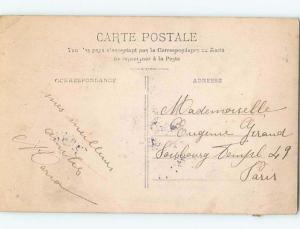 CARTE POSTALE
Tous les pays n'acceptent pas la Correspondance au Recto
Se renseigner à la Poste
CORRESPONDANCE
ADRESSE
mes meilleurs
amitiés
Marion
Mademoiselle
Eugenie Giraud
Faubourg Temple 49
Paris